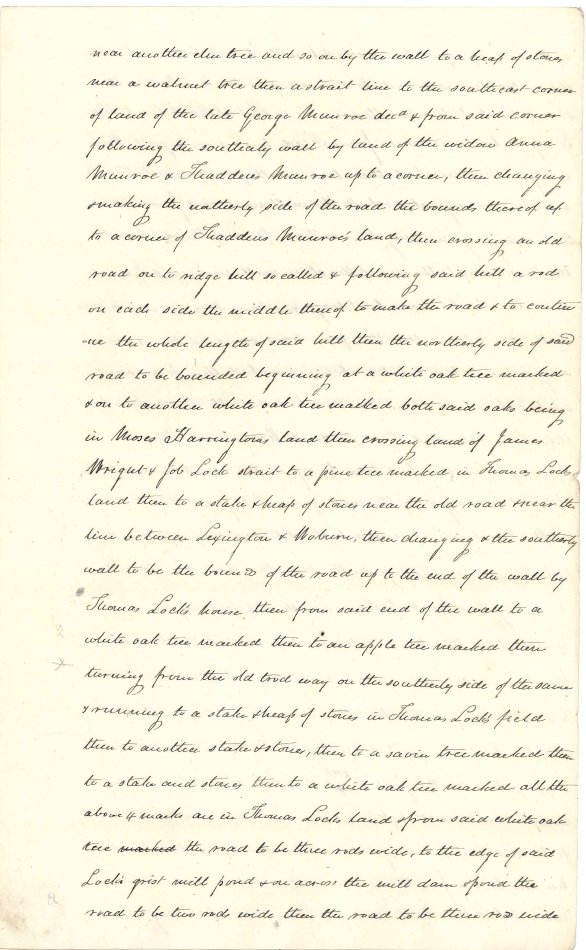 near another elm tree and so on by the wall to a heap of stones
near a walnut tree then a strait line to the southeast corner
of land of the late George Munroe decd & from said corner
following the southerly wall by land of the widow Anna
Munroe & Thaddeus Munroe up to a corner, then changing
& making the northerly side of the road the bounds thereof up
to a corner of Thaddeus Munroe's land, then crossing an old
road on to ridge hill so called & following said hill a rod
on each side the middle thereof to make the road & to contin
-ue the whole length of said hill then the northerly side of said
road to be bounded beginning at a white oak tree marked
& on to another white oak tree marked both said oaks being
in Moses Harringtons land then crossing land of James
Wright & Job Lock strait to a pine tree marked in Thomas Locks
land then to a stake & heap of stones near the old road & near the
line between Lexington & Woburn, then changing & the southerly
wall to be the bounds of the road up to the end of the wall by
Thomas Lock's house then from said end of the wall to a
white oak tree marked then to an apple tree marked then
turning from the old trod way on the southerly side of the same
& running to a stake & heap of stones in Thomas Lock's field
then to another stake & stones, then to a savin tree marked then
to a stake and stones then to a white oak tree marked all the
above 4 marks are in Thomas Locks land & from said white oak
tree marked the road to be three rods wide, to the edge of said
Lock's grist mill pond & on across the mill dam & pond the
road to be two rods wide then the road to be three rods wide